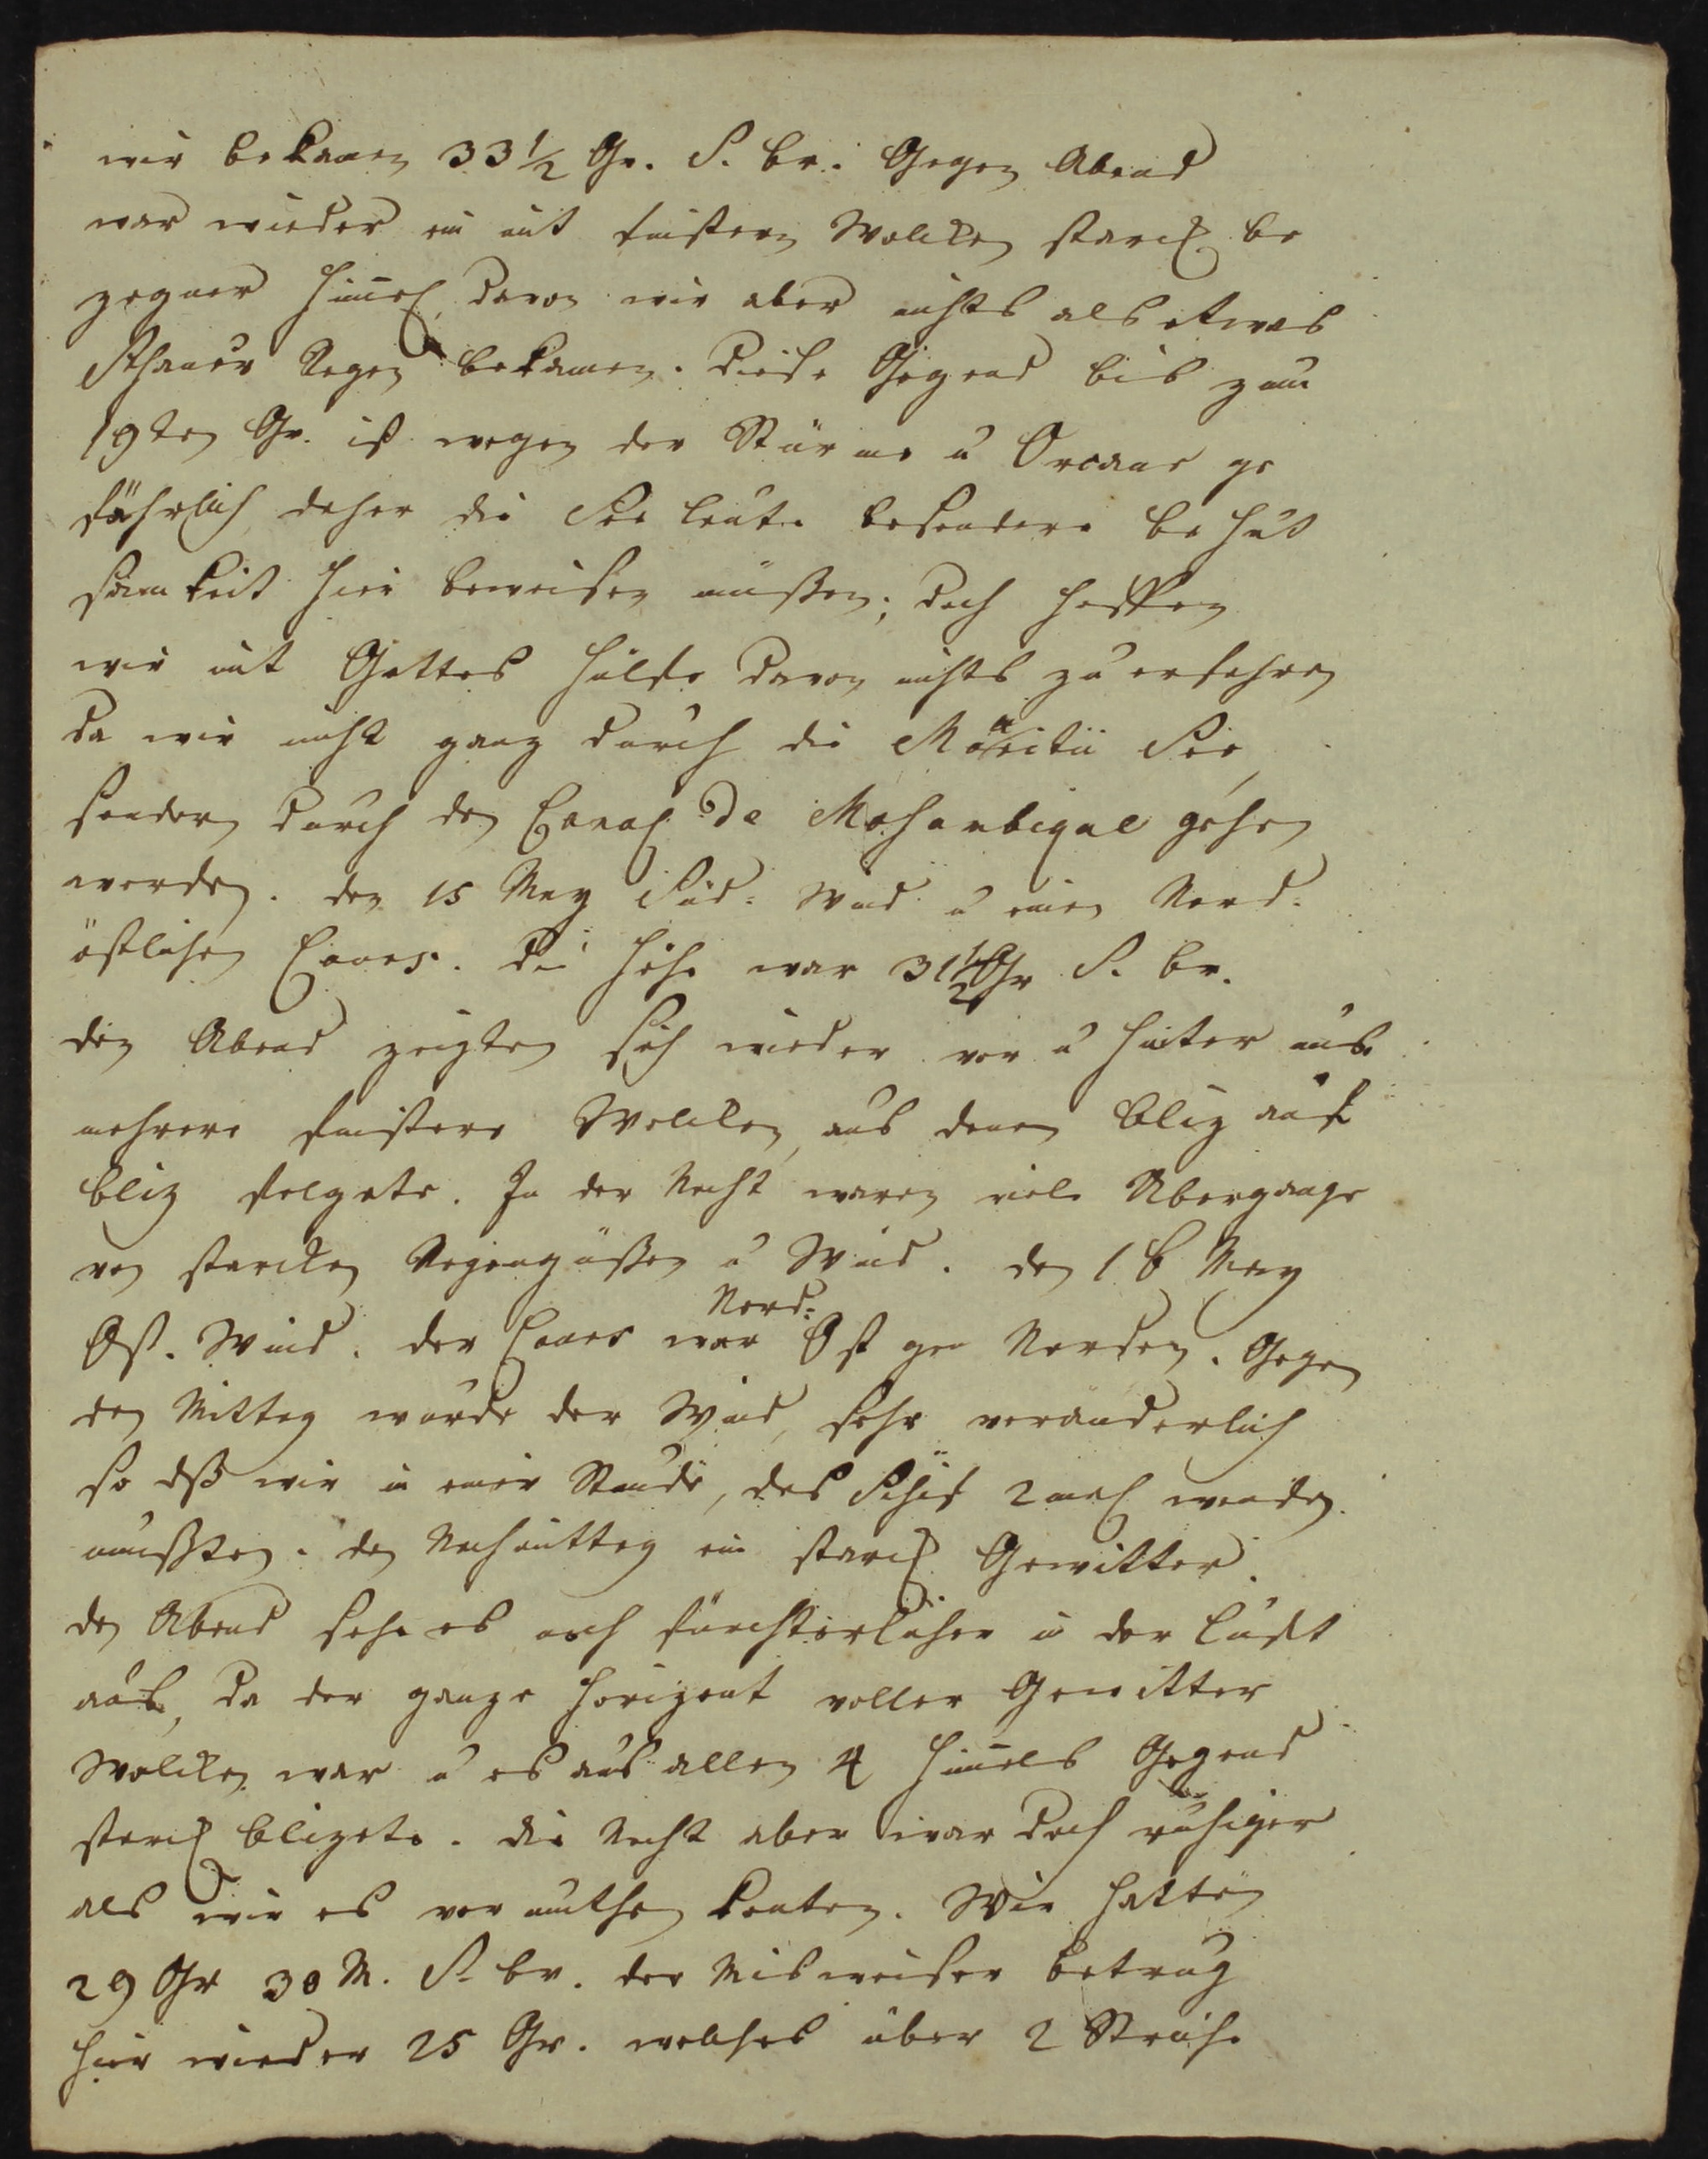 wir bekamen 33 1/2 Gr. S. br. Gegen Abend
war wieder ein mit finstern Wolcken starck be
zogner Himel, davon wir aber nichts als etwas
Schauer Regen bekamen. Diese Gegend bis zum
19ten Gr. ist wegen der Stürme u Orcane ge
fährlich, daher die See leute besondere be hut
samkeit hier beweisen müßen; doch hoffen
wir mit Gottes Hülfe davon nichts zu erfahren
da wir nicht ganz durch die Mauritii See,
sondern durch den Canal de Mosambique gehen
werden. den 15 May Süd-Wind u einen Nord-
östlichen Cours. Die Höhe war 31 1/2 Gr S. br.
den Abend zeigten sich wieder vor u hinter uns
mehrere finstere Wolcken, aus denen Bliz auf
Bliz folgete. In der Nacht waren viele Übergange
von starcken Regengüßen u Wind. den 16 May
Ost-Wind. der Cours war Nord-Ost gen Norden. Gegen
den Mittag wurde der Wind, sehr veränderlich
so dß wir in einer Stunde, das Schif 2 mal wenden
mußten. den Nachmittag ein starck Gewitter.
den Abend sahe es noch fürchterlicher in der Luft
aus, da der ganze Horizont voller Gewitter
Wolcken war u es aus allen 4 Himels Gegend
starck blizete. die Nacht aber war doch ruhiger
als wir es vermuthen konten. Wir hatten
29 Gr 30 M. S. br. der Misweiser betrug
hier wieder 25 Gr. welches über 2 Striche